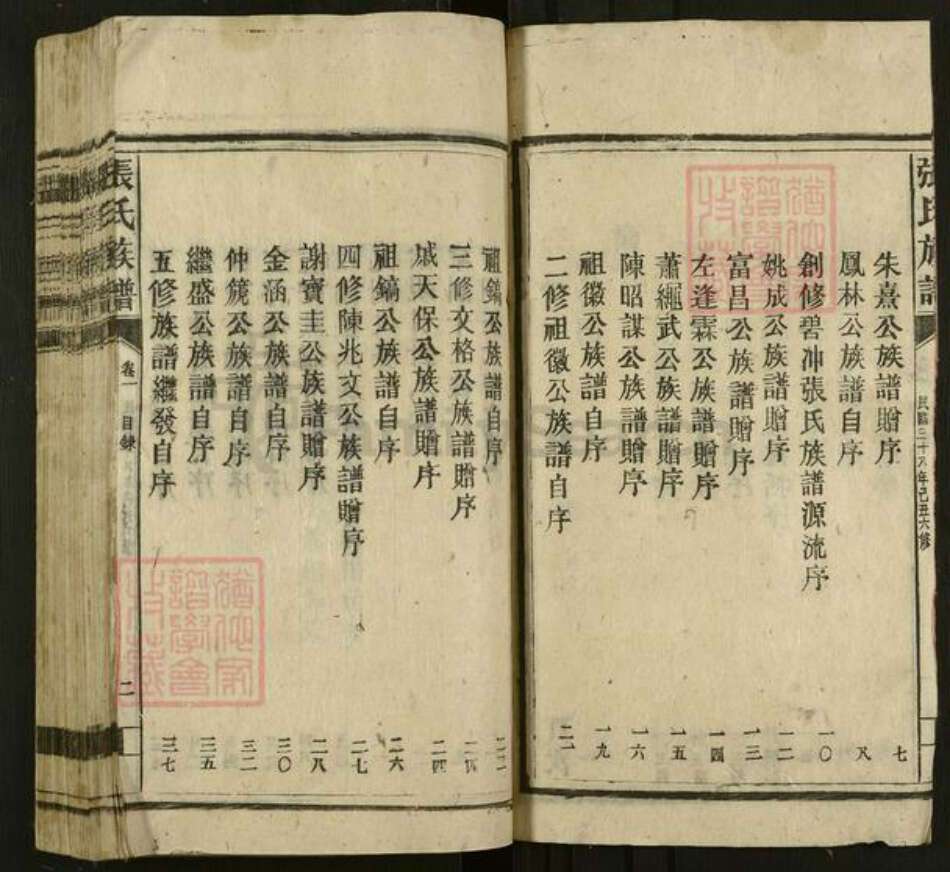 張氏族譜
民國三十八年己丑六修
朱熹公族譜贈序 七
鳳林公族譜自序 八
創修碧冲張氏族譜源流序 一〇
姚成公族譜贈序 一二
富昌公族譜贈序 一三
左逢霖公族譜贈序 一四
蕭繩武公族譜贈序 一五
陳昭謀公族譜贈序 一六
祖徽公族譜自序 一九
二修祖徽公族譜自序 二一
祖鎬公族譜自序
三修文格公族譜贈序
戚天保公族譜贈序 二四
祖鎬公族譜自序 二六
四修陳兆文公族譜贈序 二七
謝寶圭公族譜贈序 二八
金涵公族譜自序 三〇
仲箎公族譜自序 三二
繼盛公族譜自序 三五
五修族譜繼發自序 三七
張氏族譜
卷一 目錄
二